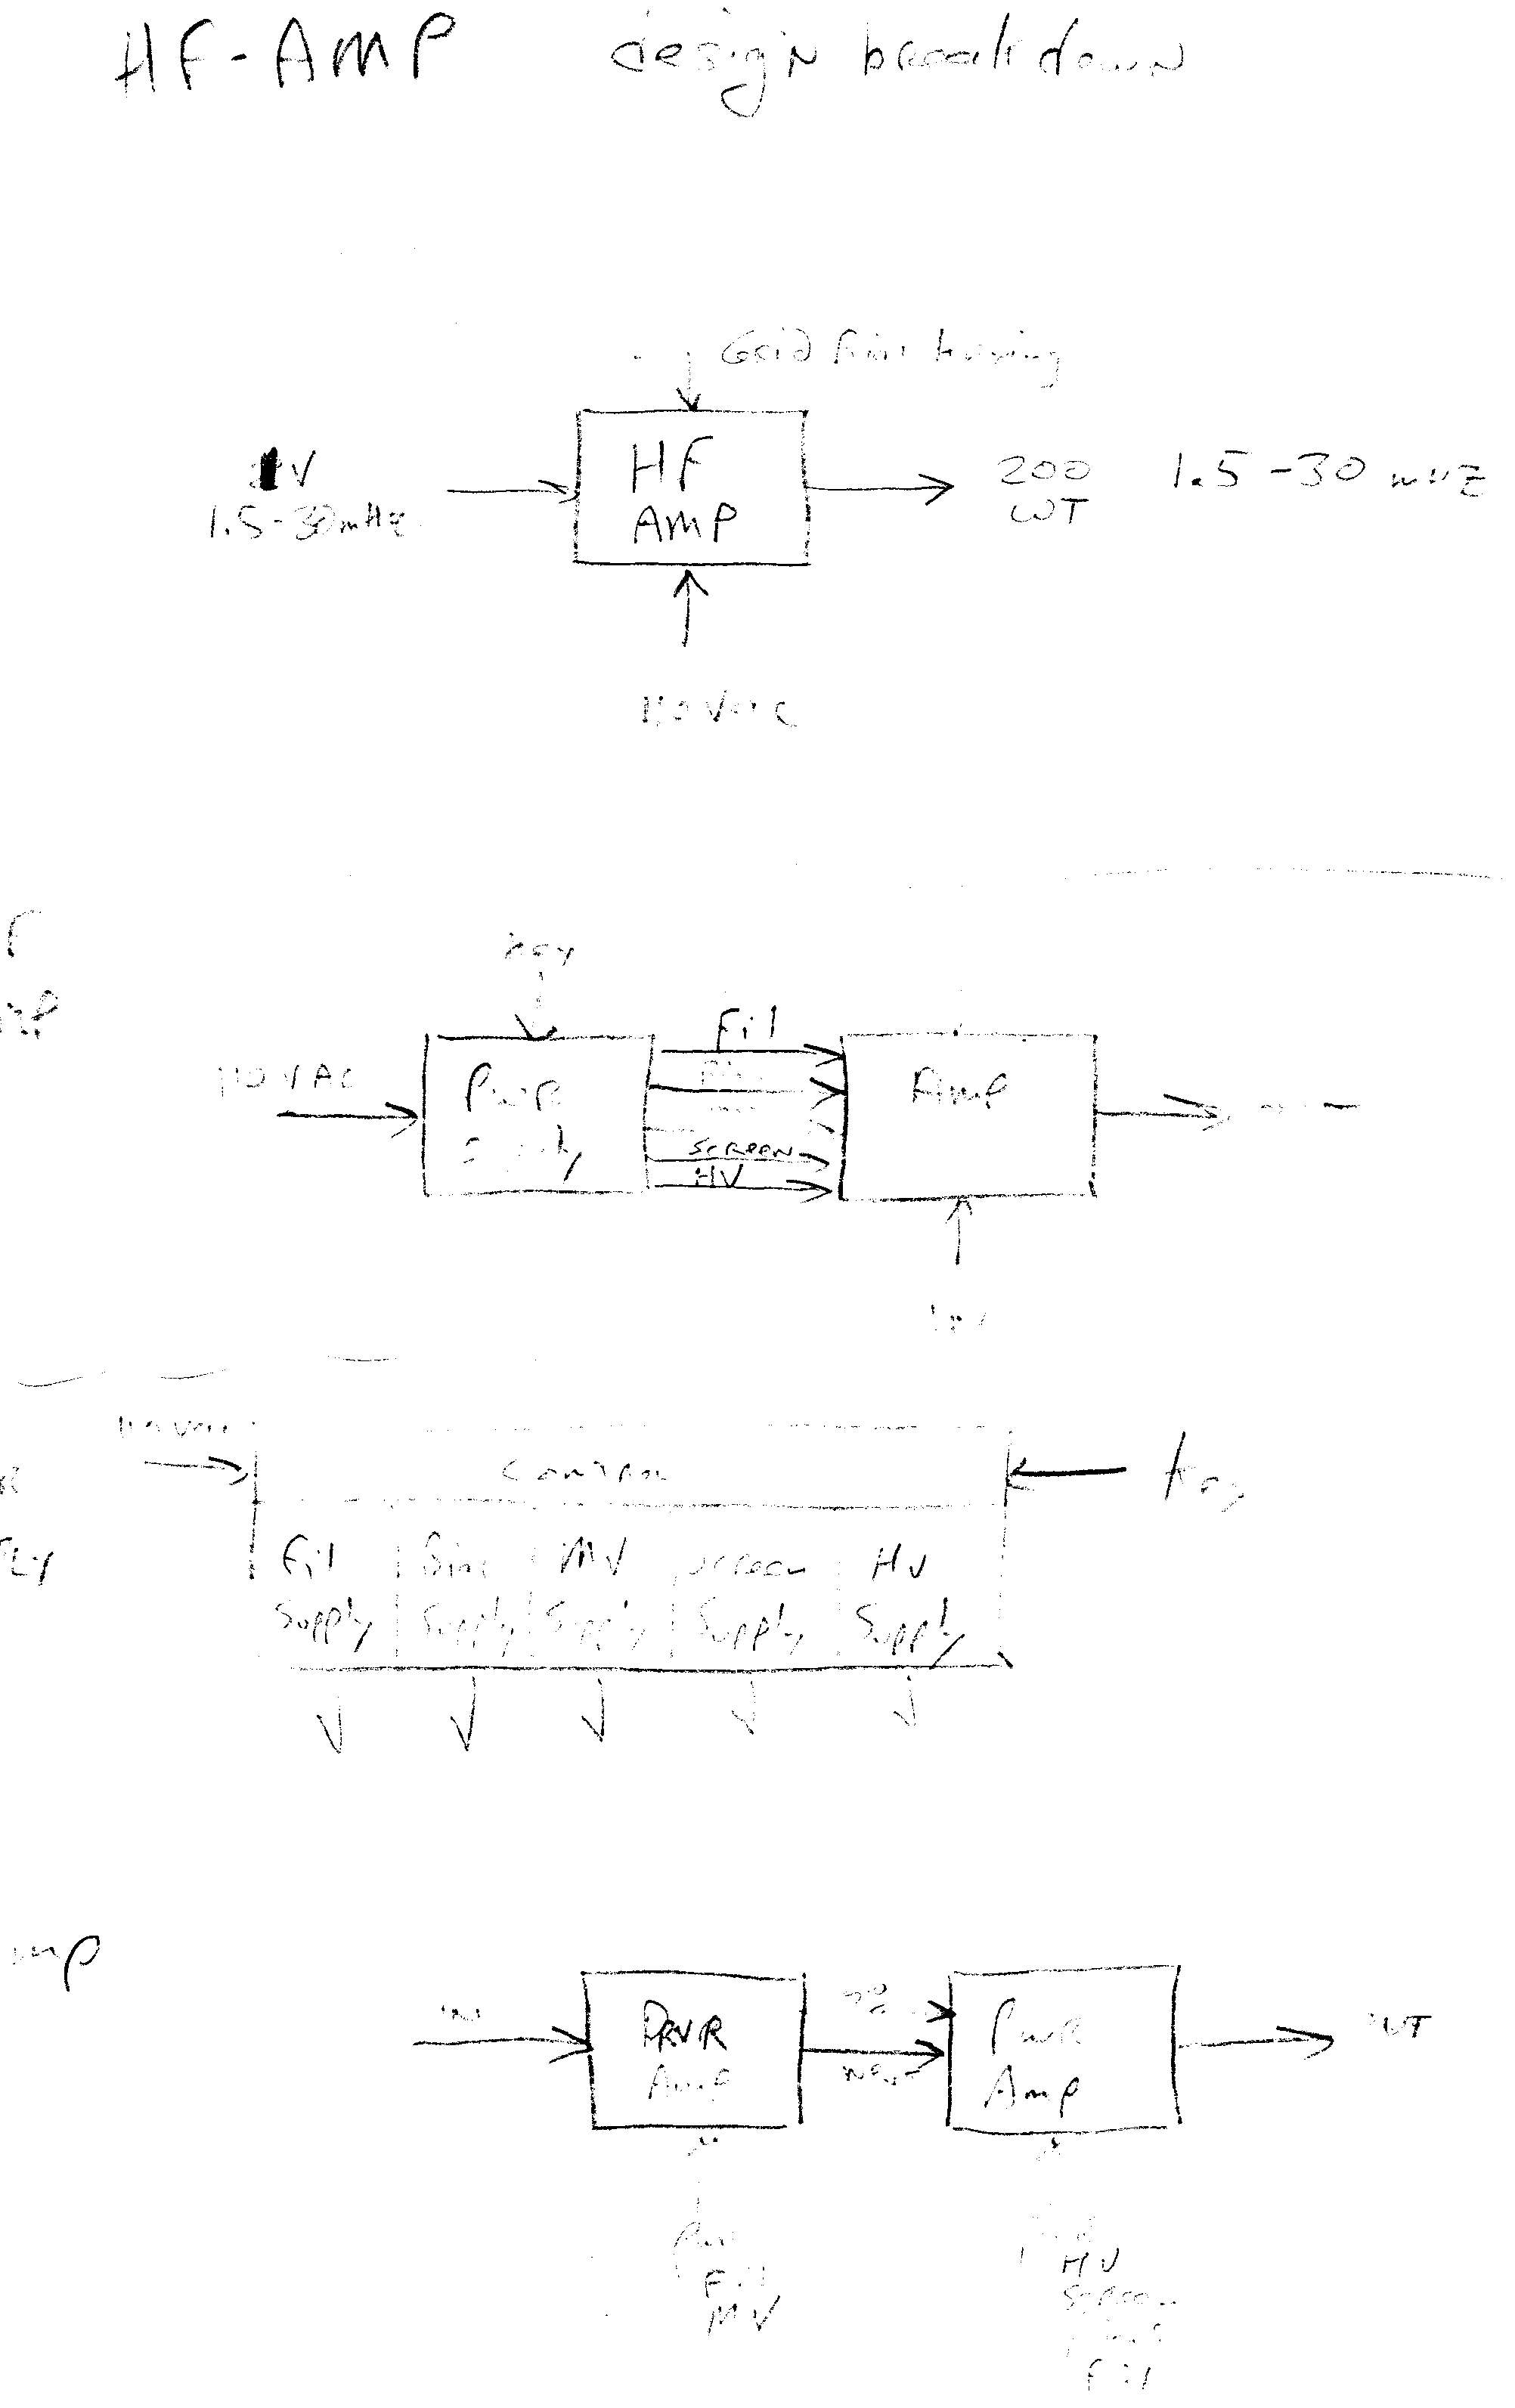 HF-AMP design breakdown
Grid Bias tuning
V
1.5-30mHz
HF
AMP
200
WT
1.5-30 mHZ
110 VAC
Key
110 VAC
PWR
Fil
SCREEN
HV
AMP
110 VAC
CONTROL
Key
Fil
Supply
Bias
Supply
MV
Supply
screen
Supply
HV
Supply
IN
DRVR
Amp
PWR
Amp
OUT
Pwr
Fil
MV
HV
Screen
Fil